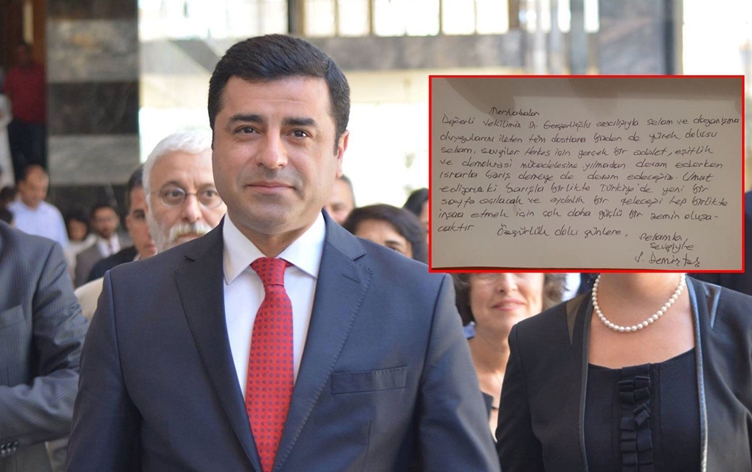 Merhabalar
Değerli Vekilimiz Dr Gergerlioğlu aracılığıyla selam ve dayanışma
duygularını ileten tüm dostlara bizden de yürek dolusu
selam, sevgiler. Herkes için gerçek bir adalet, eşitlik
ve demokrasi mücadelesine yılmadan devam ederken
ısrarla barış demeye de devam edeceğiz. Umut
ediyoruz ki barışla birlikte Türkiye'de yeni bir
sayfa açılacak ve aydınlık bir geleceği hep birlikte
inşa etmek için çok daha güçlü bir zemin oluşa-
caktır.
Özgürlük dolu günlere.
Selamla,
Sevgiyle
S. Demirtaş